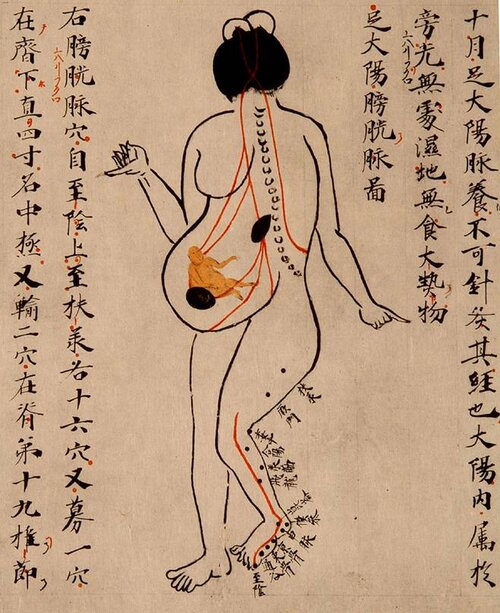 十月足大陽脉養不可針灸其經也大陽内属於
旁光無處濕地無食大熱物
足大陽膀胱脉啚
右膀胱脉穴自至陰上至扶承各十六穴又募一穴
在齊下直四寸名中極又輸二穴在脊第十九椎節
扶承
殷門
合陽
至陰